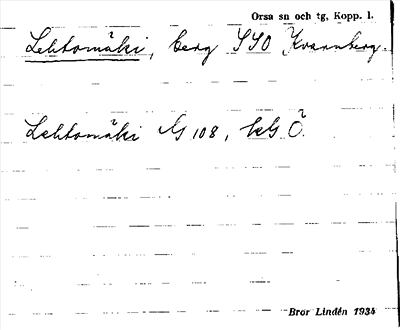 Orsa sn och tg, Kopp. l.
Lehtomäki, berg SSO Kvarnberg.
Lehtomäki G 108, Ö.
Bror Lindén 1934